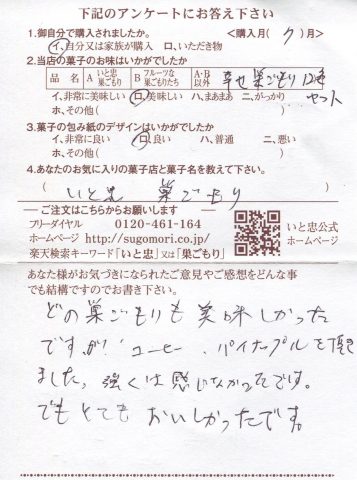 下記のアンケートにお答え下さい
1.御自分で購入されましたか。 <購入月( 7 )月>
イ、自分又は家族が購入 ロ、いただき物
2.当店の菓子のお味はいかがでしたか
品名 A いと忠巣ごもり B フルーツな巣ごもりたち A・B以外 幸せ巣ごもり12個セット
イ、非常に美味しい ロ、美味しい ハ、まあまあ ニ、がっかり
ホ、その他( )
3.菓子の包み紙のデザインはいかがでしたか
イ、非常に良い ロ、良い ハ、普通 ニ、悪い
ホ、その他( )
4.あなたのお気に入りの菓子店と菓子名を教えて下さい。
( いと忠 巣ごもり )
ご注文はこちらからお願いします
フリーダイヤル 0120-461-164
ホームページ http://sugomori.co.jp/
楽天検索キーワード「いと忠」又は「巣ごもり」
いと忠公式
ホームページ
あなた様がお気づきになられたご意見やご感想をどんな事
でも結構ですのでお書き下さい。
どの巣ごもりも美味しかった
ですが、コーヒー、パイナップルを頂き
ました。強くは感じなかったです。
でもとてもおいしかったです。